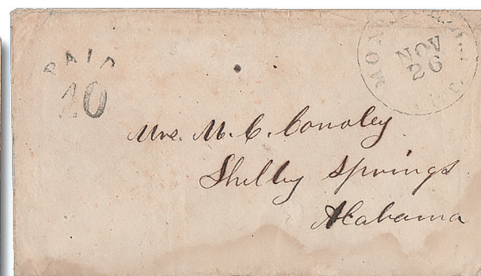 PAID
10
NOV
26
Mrs. M. C. Conoley
Shelby Springs
Alabama